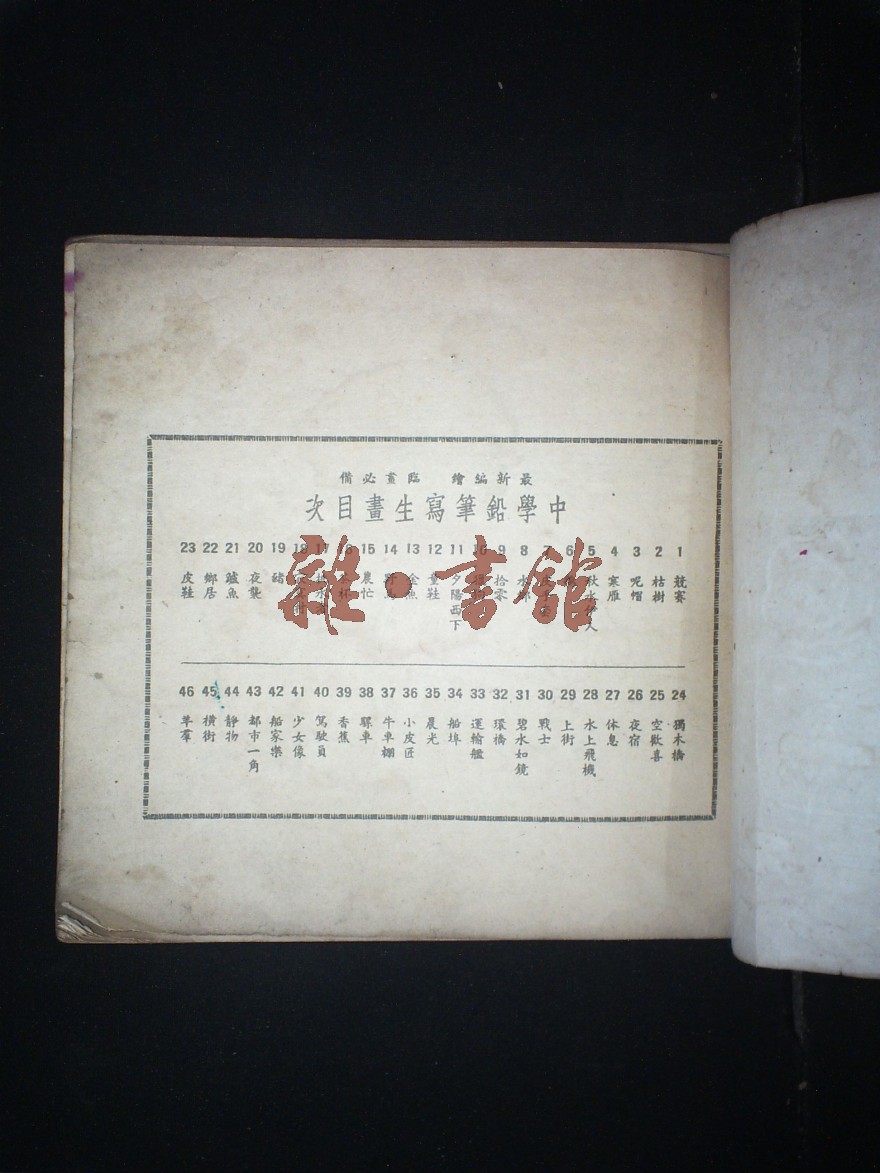 最新編繪 臨畫必備
中學鉛筆寫生畫目次
1 競賽
2 枯樹
3 呢帽
4 寒雁
5 秋水伊人
6
7
8 水鄉
9 拾零
10
11 夕陽西下
12 童鞋
13 金魚
14 野馬
15 農忙
16 茶杯
17
18
19
20 夜襲
21 鱸魚
22 鄉居
23 皮鞋
24 獨木橋
25 空歡喜
26 夜宿
27 休息
28 水上飛機
29 上街
30 戰士
31 碧水如鏡
32 環橋
33 運輸艦
34 船埠
35 晨光
36 小皮匠
37 牛車棚
38 騾車
39 香蕉
40 駕駛員
41 少女像
42 船家樂
43 都市一角
44 靜物
45 橫街
46 羊羣
雜·書館